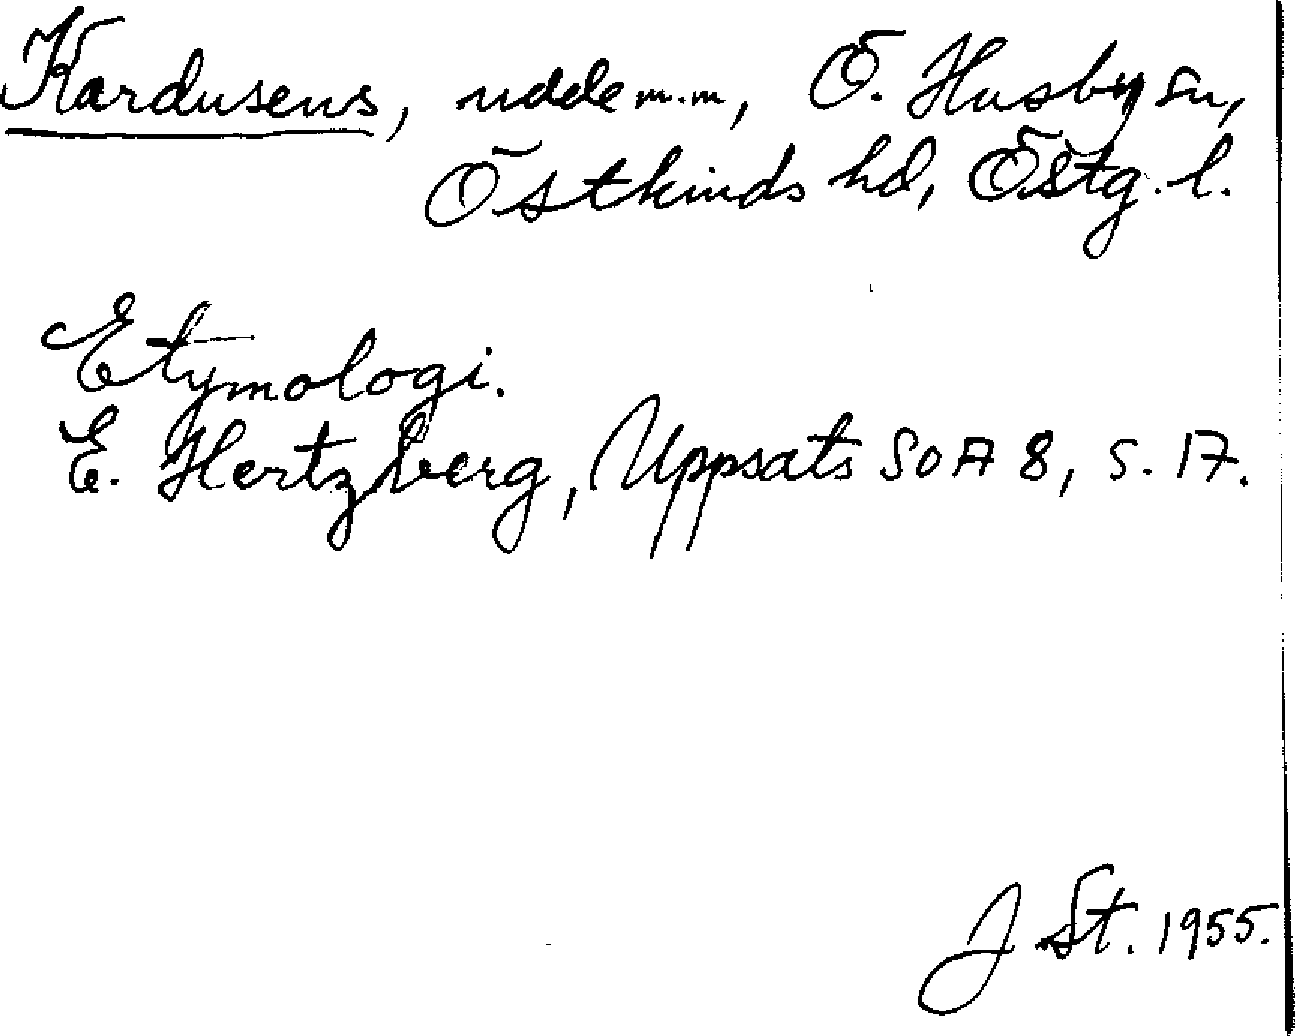 Kardusens, udde m.m, Ö. Husby sn,
Östkinds hd, Östg. l.
Etymologi.
E. Hertzberg, Uppsats SOA 8, s. 17.
J St. 1955.